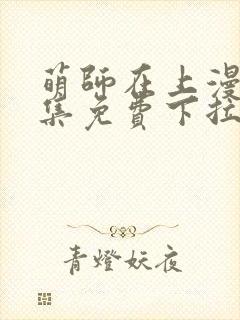 萌师在上漫
集免费下拉
青燈妖夜